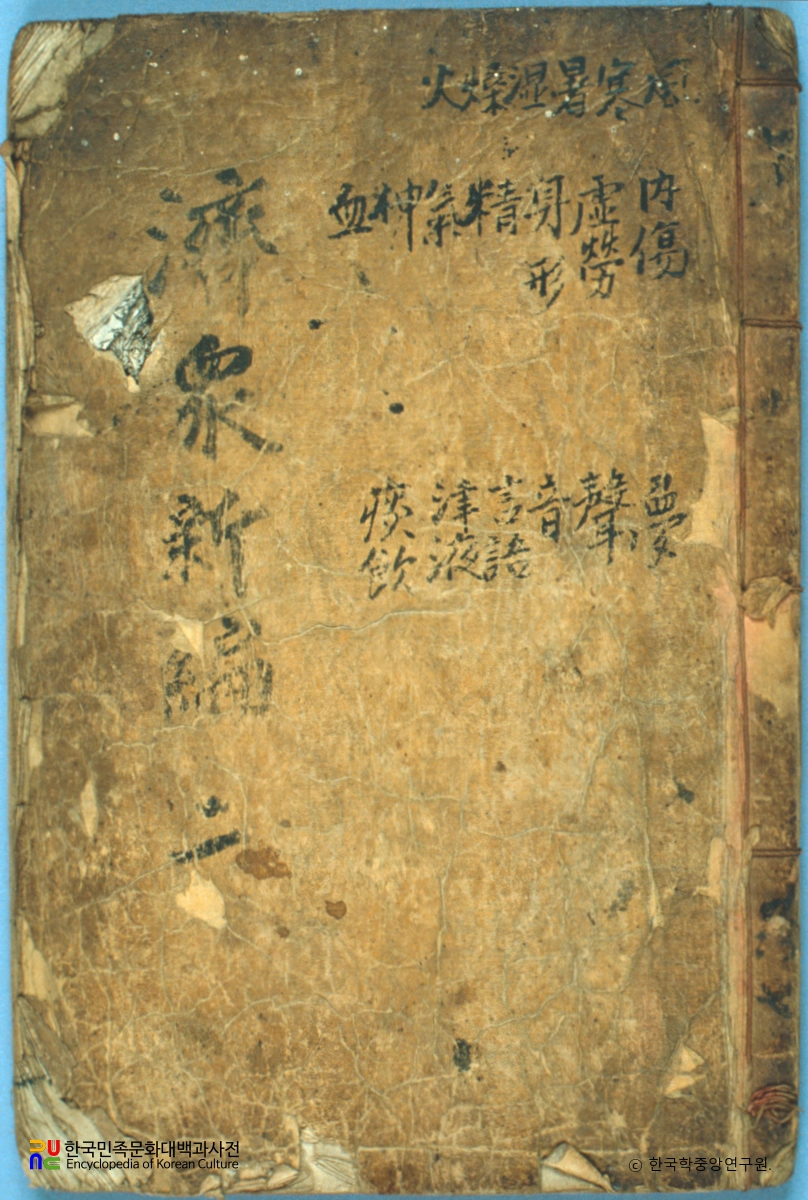 風寒暑湿燥火
内傷
虛勞
身形
精
氣
神
血
夢
聲
音
言語
津液
痰飮
濟衆新編 二
한국민족문화대백과사전
Encyclopedia of Korean Culture
© 한국학중앙연구원.